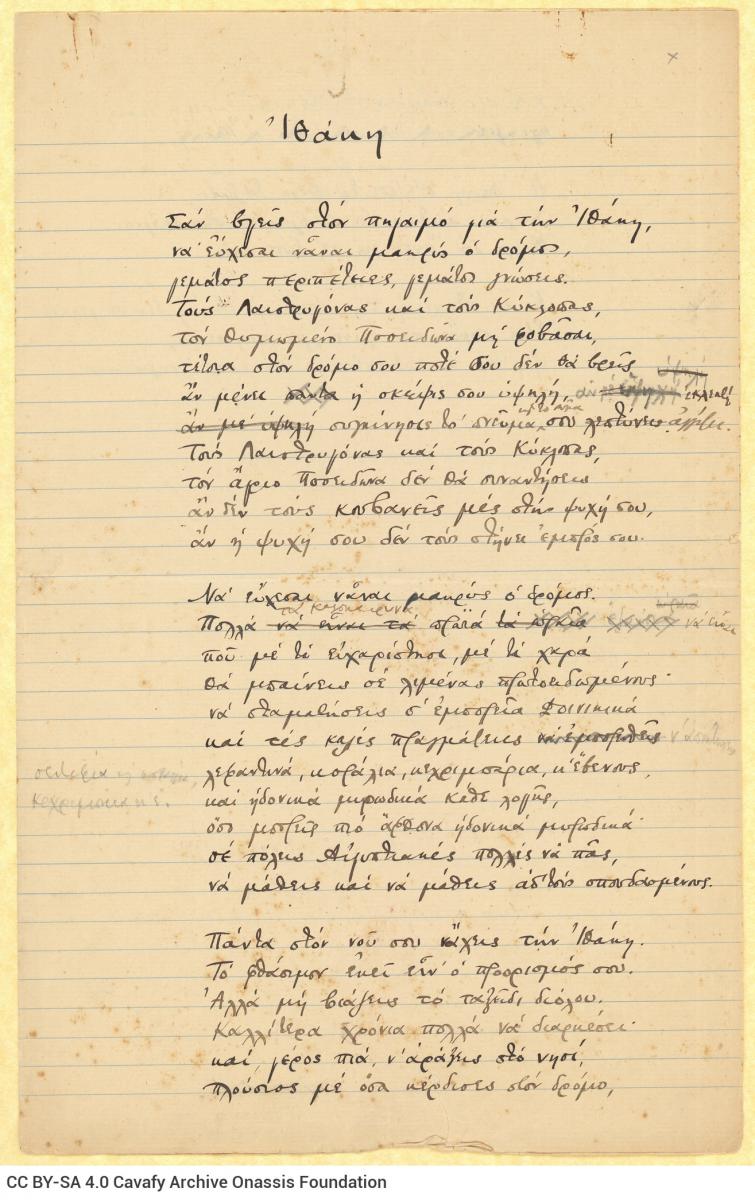 Ἰθάκη
Σάν βγεῖς στόν πηγαιμό γιά τήν Ἰθάκη,
νά εὔχεσαι νἆναι μακρύς ὁ δρόμος,
γεμάτος περιπέτειες, γεμάτος γνώσεις.
Τούς Λαιστρυγόνας καί τούς Κύκλωπας,
τόν θυμωμένο Ποσειδῶνα μή φοβᾶσαι,
τέτοια στόν δρόμο σου ποτέ σου δέν θά βρεῖς
ὑψηλή
ἄν μένει πάντα ἡ σκέψις σου ὑψηλή, ἄν ἐκλεκτή
ἄν μέ ὑψηλή συγκίνησις τό πνεῦμα σου λεπτύνεις ἀγγίζει.
Τούς Λαιστρυγόνας καί τούς Κύκλωπας,
τόν ἄγριο Ποσειδῶνα δέν θά συναντήσεις
ἄν δέν τούς κουβανεῖς μές στήν ψυχή σου,
ἄν ἡ ψυχή σου δέν τούς στήνει ἐμπρός σου.
Νά εὔχεσαι νἆναι μακρύς ὁ δρόμος.
τά καλοκαιρινά
Πολλά νά εἶναι τά πρωϊά νά εἶναι
πού μέ τί εὐχαρίστησι, μέ τί χαρά
θά μπαίνεις σέ λιμένας πρωτοειδωμένους·
νά σταματήσεις σ' ἐμπορεῖα Φοινικικά
καί τές καλές πραγμάτειες ν' ἀποκτήσεις
σεντέφια
λεφαντινά, κοράλια, κεχριμπάρια, κ' ἔβενους,
καί ἡδονικά μυρωδικά κάθε λογῆς,
ὅσο μπορεῖς πιό ἄφθονα ἡδονικά μυρωδικά·
σέ πόλεις Αἰγυπτιακές πολλές νά πᾶς,
νά μάθεις καί νά μάθεις ἀπ' τούς σπουδασμένους.
Πάντα στόν νοῦ σου νἄχεις τήν Ἰθάκη.
Τό φθάσιμον ἐκεῖ εἶν' ὁ προορισμός σου.
Ἀλλά μή βιάζεις τό ταξεῖδι διόλου.
Καλλίτερα χρόνια πολλά νά διαρκέσει·
καί γέρος πιά ν' ἀράξεις στό νησί,
πλούσιος μέ ὅσα κέρδισες στόν δρόμο,
CC BY-SA 4.0 Cavafy Archive Onassis Foundation